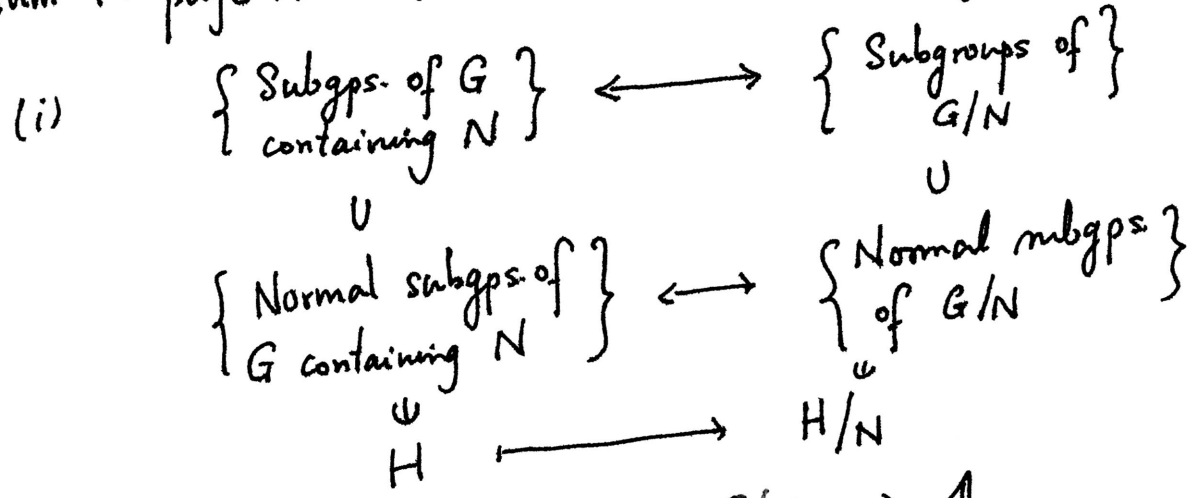 page
(i) { Subgps. of G containing N } ⟷ { Subgroups of G/N }
∪ ∪
{ Normal subgps. of G containing N } ⟷ { Normal subgps. of G/N }
∈ ∈
H ⟼ H/N